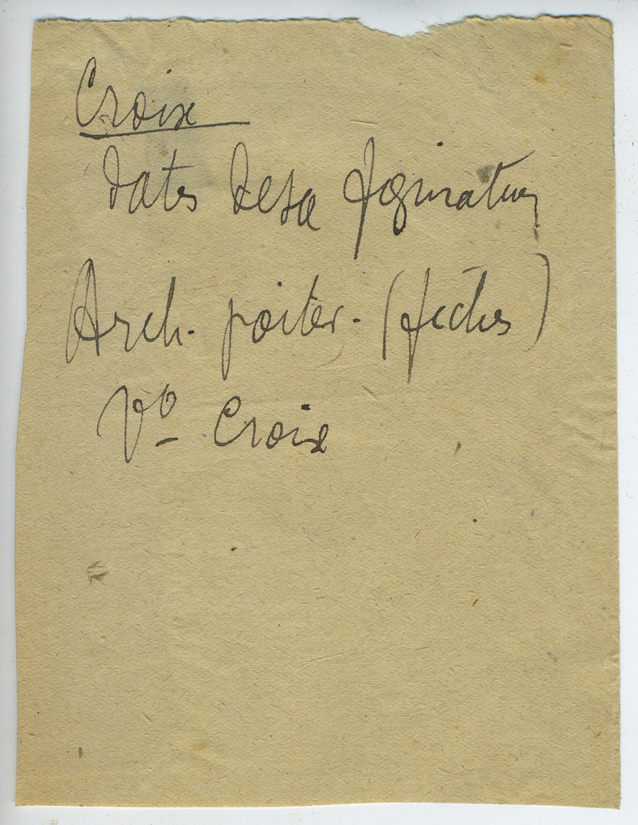 Croix
dates de sa figuration
Arch. poitev. (fiches)
Vº Croix